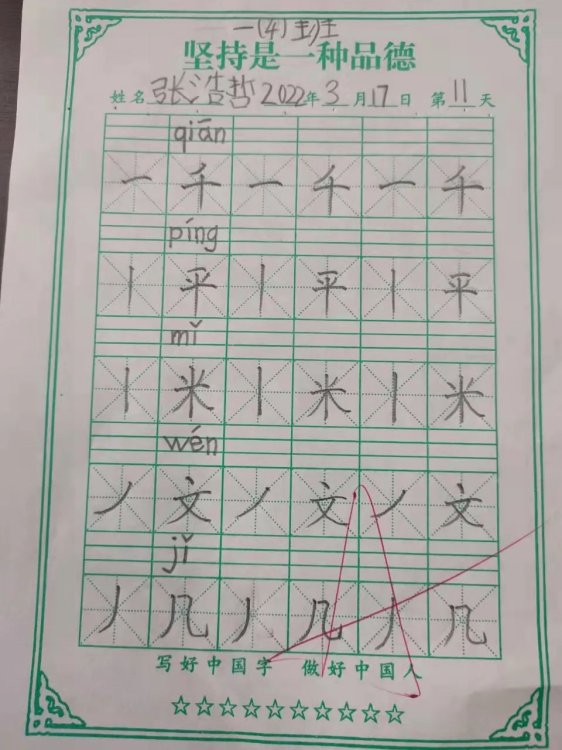 一(4)班
坚持是一种品德
姓名张浩哲2022年3月17日 第11天
qiān
一 千 一 千 一 千
píng
丨 平 丨 平 丨 平
mǐ
丨 米 丨 米 丨 米
wén
丿 文 丿 文 丿 文
jǐ
丿 几 丿 几 丿 几
写好中国字 做好中国人